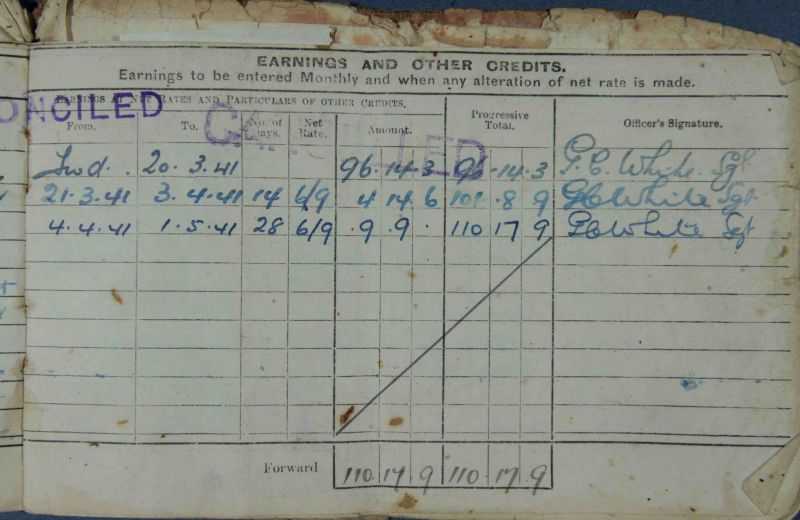 EARNINGS AND OTHER CREDITS.
Earnings to be entered Monthly and when any alteration of net rate is made.
EARNINGS AT NET RATES AND PARTICULARS OF OTHER CREDITS.
ONCILED
CANCELLED
From. To. No. of Days. Net Rate. Amount. Progressive Total. Officer's Signature.
Fwd. 20.3.41 96.14.3 96.14.3 G.C. White. Sgt
21.3.41 3.4.41 14 6/9 4 14 6 101.8 9 GC White Sgt
4.4.41 1.5.41 28 6/9 .9 9. 110 17 9 GC White Sgt
Forward 110.17.9 110.17.9